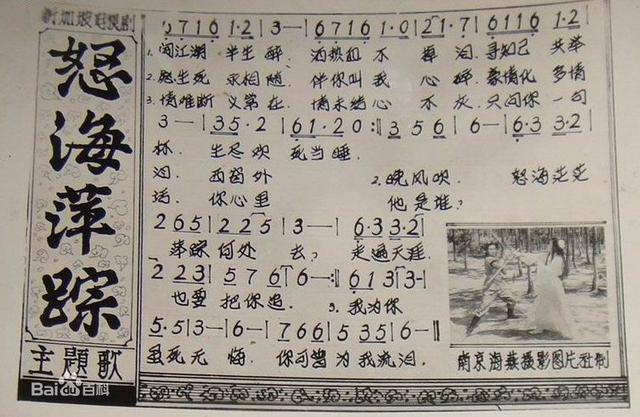 新加坡电视剧
怒海萍踪
主題歌
6716 1·2 | 3— | 6716 1·0 | 2·1·7 | 6116 1·2 |
1. 闯江湖 半生醉. 洒热血 不 掉泪. 寻知己 共举
2. 愿生死 永相随. 伴你叫我 心碎. 豪情化 多情
3. 情难断 义常在. 情未绝心 不灰. 只问你 一句
3— | 35·2 | 61·20 :‖ 3 5 6 | 6— | 6·3 3·2 |
杯. 生尽欢 死当睡.
泪. 2. 晚风吹. 怒海茫茫
话. 你心里 他是谁?
265 | 225 | 3— | 6·33·2 |
萍踪何处 去? 走遍天涯
2 223 | 576 | 6— :‖ 613 | 3— |
也要 把你追. 3. 我为你
5·53— | 6— | 766 | 535 | 6— ‖
虽死无悔. 你可曾为我流泪.
南京海燕摄影图片社制
Bai百科